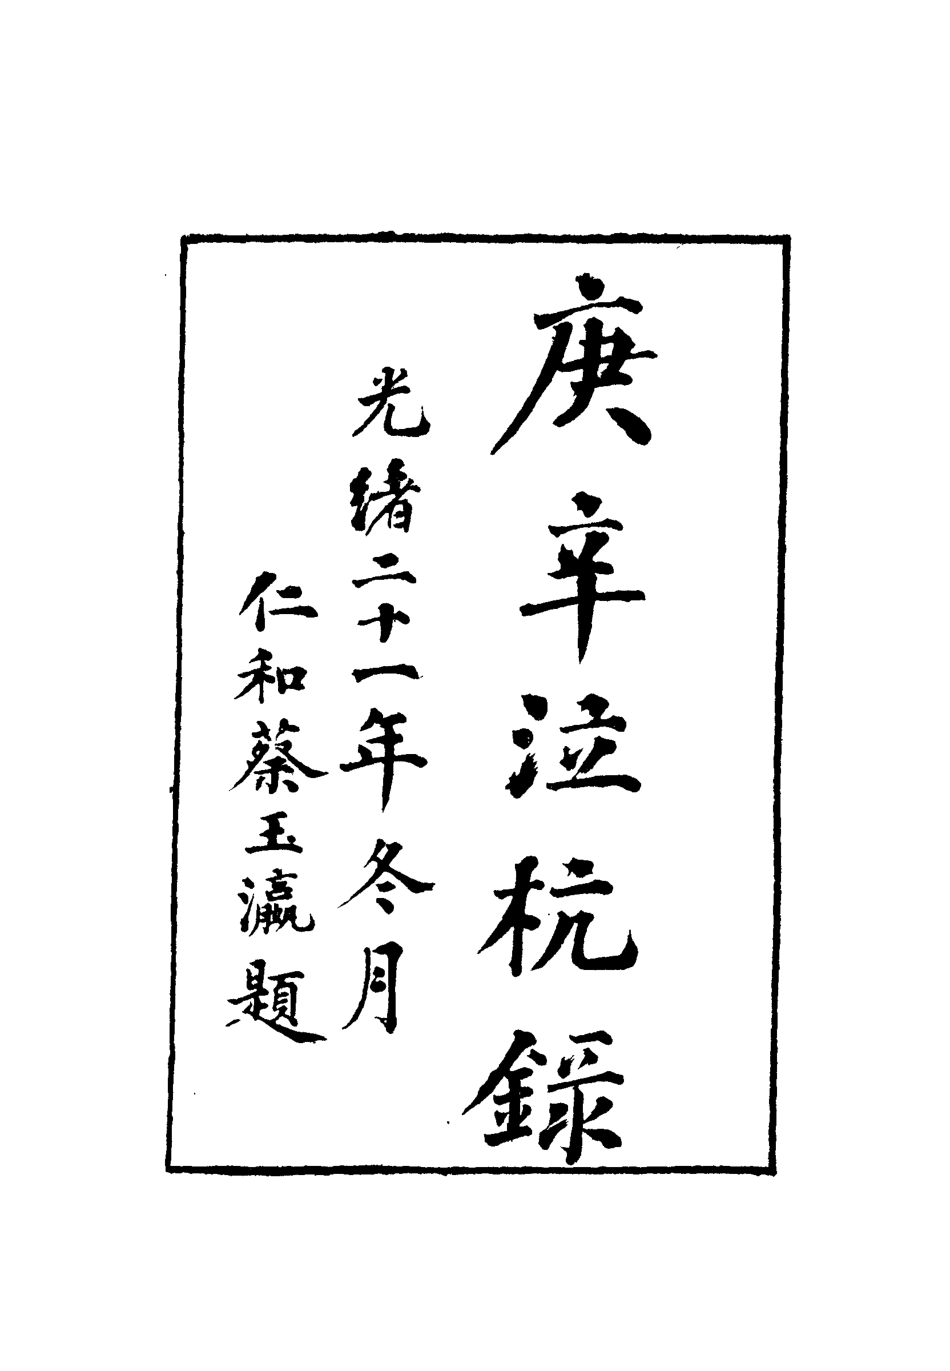 庚辛泣杭錄
光緒二十一年冬月
仁和蔡玉瀛題